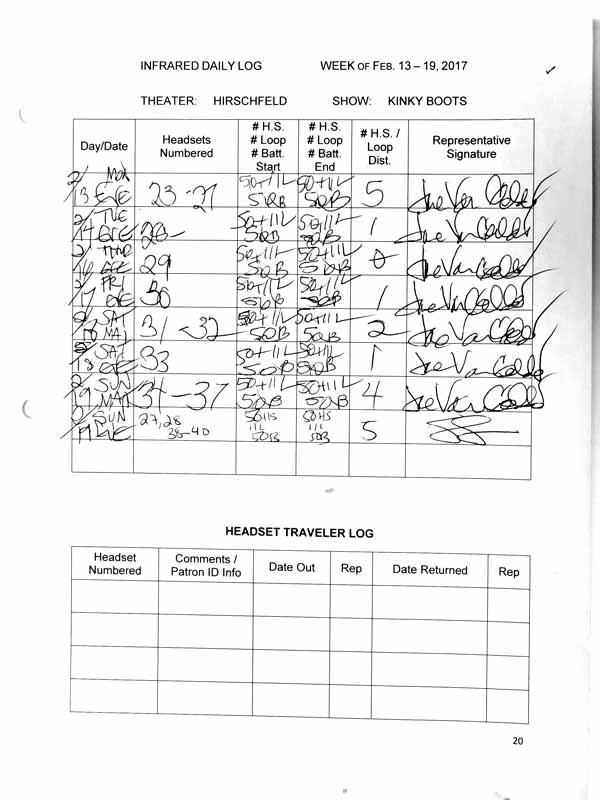 INFRARED DAILY LOG WEEK OF FEB. 13 – 19, 2017
THEATER: HIRSCHFELD SHOW: KINKY BOOTS
Day/Date Headsets Numbered # H.S. # Loop # Batt. Start # H.S. # Loop # Batt. End # H.S. / Loop Dist. Representative Signature
2/13 MON EVE 23-27 50+11L 50B 50+11L 50B 5
2/14 TUE EVE 28- 50+11L 50B 50+11L 50B 1
2/16 THUR EVE 29 50+11L 50B 50+11L 50B 0
2/17 FRI EVE 30 50+11L 50B 50+11L 50B 1
2/18 SAT MAT 31-32 50+11L 50B 50+11L 50B 2
2/18 SAT EVE 33 50+11L 50B 50+11L 50B 1
2/19 SUN MAT 34-37 50+11L 50B 50+11L 50B 4
2/19 SUN EVE 27,28 38-40 50HS 11L 50B 50HS 11L 50B 5
HEADSET TRAVELER LOG
Headset Numbered Comments / Patron ID Info Date Out Rep Date Returned Rep
20